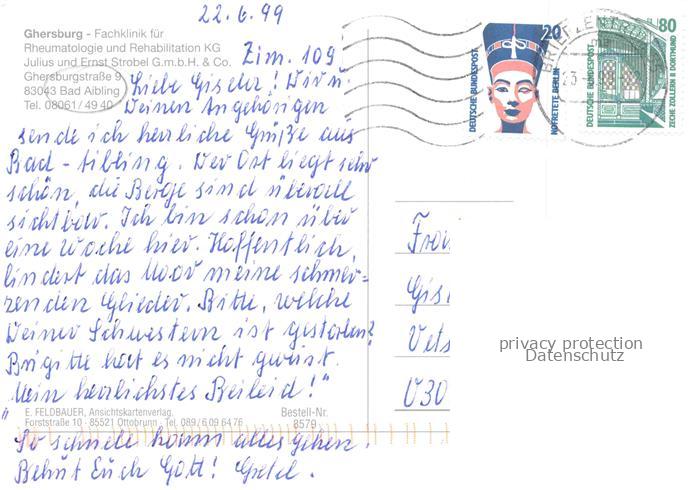 22.6.99
Ghersburg - Fachklinik für
Rheumatologie und Rehabilitation KG
Julius und Ernst Strobel G.m.b.H. & Co.
Ghersburgstraße 9
83043 Bad Aibling
Tel. 08061/49 40
Zim. 109
Liebe Gisela! Dir u.
Deinen Angehörigen
sende ich herrliche Grüße aus
Bad-Aibling. Der Ort liegt sehr
schön, die Berge sind überall
sichtbar. Ich bin schon über
eine Woche hier. Hoffentlich
lindert das Moor meine schmer=
zenden Glieder. Bitte, welche
Deiner Schwestern ist gestorben?
Brigitte hat es nicht gewusst.
"Mein herzlichstes Beileid!"
E. FELDBAUER, Ansichtskartenverlag,
Forststraße 10 - 85521 Ottobrunn · Tel. 089/6 09 64 76
Bestell-Nr.
8579
So schnell kann alles gehen.
Behüt Euch Gott! Gretel.
DEUTSCHE BUNDESPOST
20
NOFRETETE BERLIN
BRIEFZENTRUM
23.
DEUTSCHE BUNDESPOST
80
ZECHE ZOLLERN II DORTMUND
Frau
Gis
privacy protection
Datenschutz